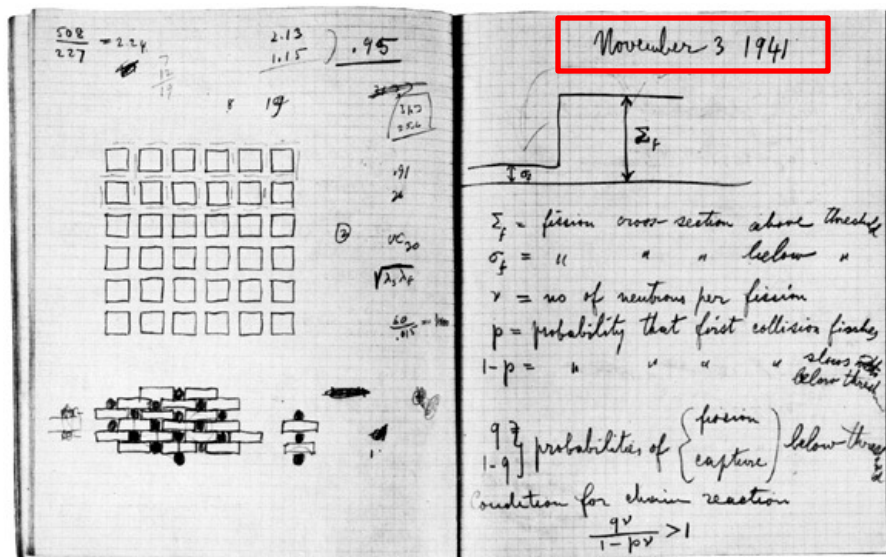 508
227 = 2.24
7
12
19
2.13
1.15
.95
8 19
.91
26
②
UC20
√λsλf
60
.015
November 3 1941
Σf
σf
Σf = fission cross section above threshold
σf = " " " below "
ν = no of neutrons per fission
p = probability that first collision fissions
1-p = " " " " slows
below thresh
q
1-q } probabilities of { fission
capture } below thresh
Condition for chain reaction
qν
1-pν > 1